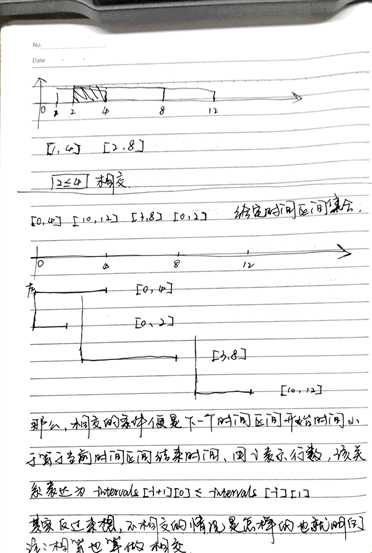 No.
Date
0 1 2 4 8 12
[1, 4] [2, 8]
[2≤4] 相交
[0,4] [10,12] [3,8] [0,2] 给定时间区间集合.
0 4 8 12
[0, 4]
[0, 2]
[3,8]
[10,12]
那么,相交的条件便是下一个时间区间开始时间小
于等于当前时间区间结束时间、用i表示行数,该关
系表达为 intervals [i+1][0] ≤ intervals [i][1]
其实反过来想,不相交的情况是怎样的也就明白
注:相等也算做相交